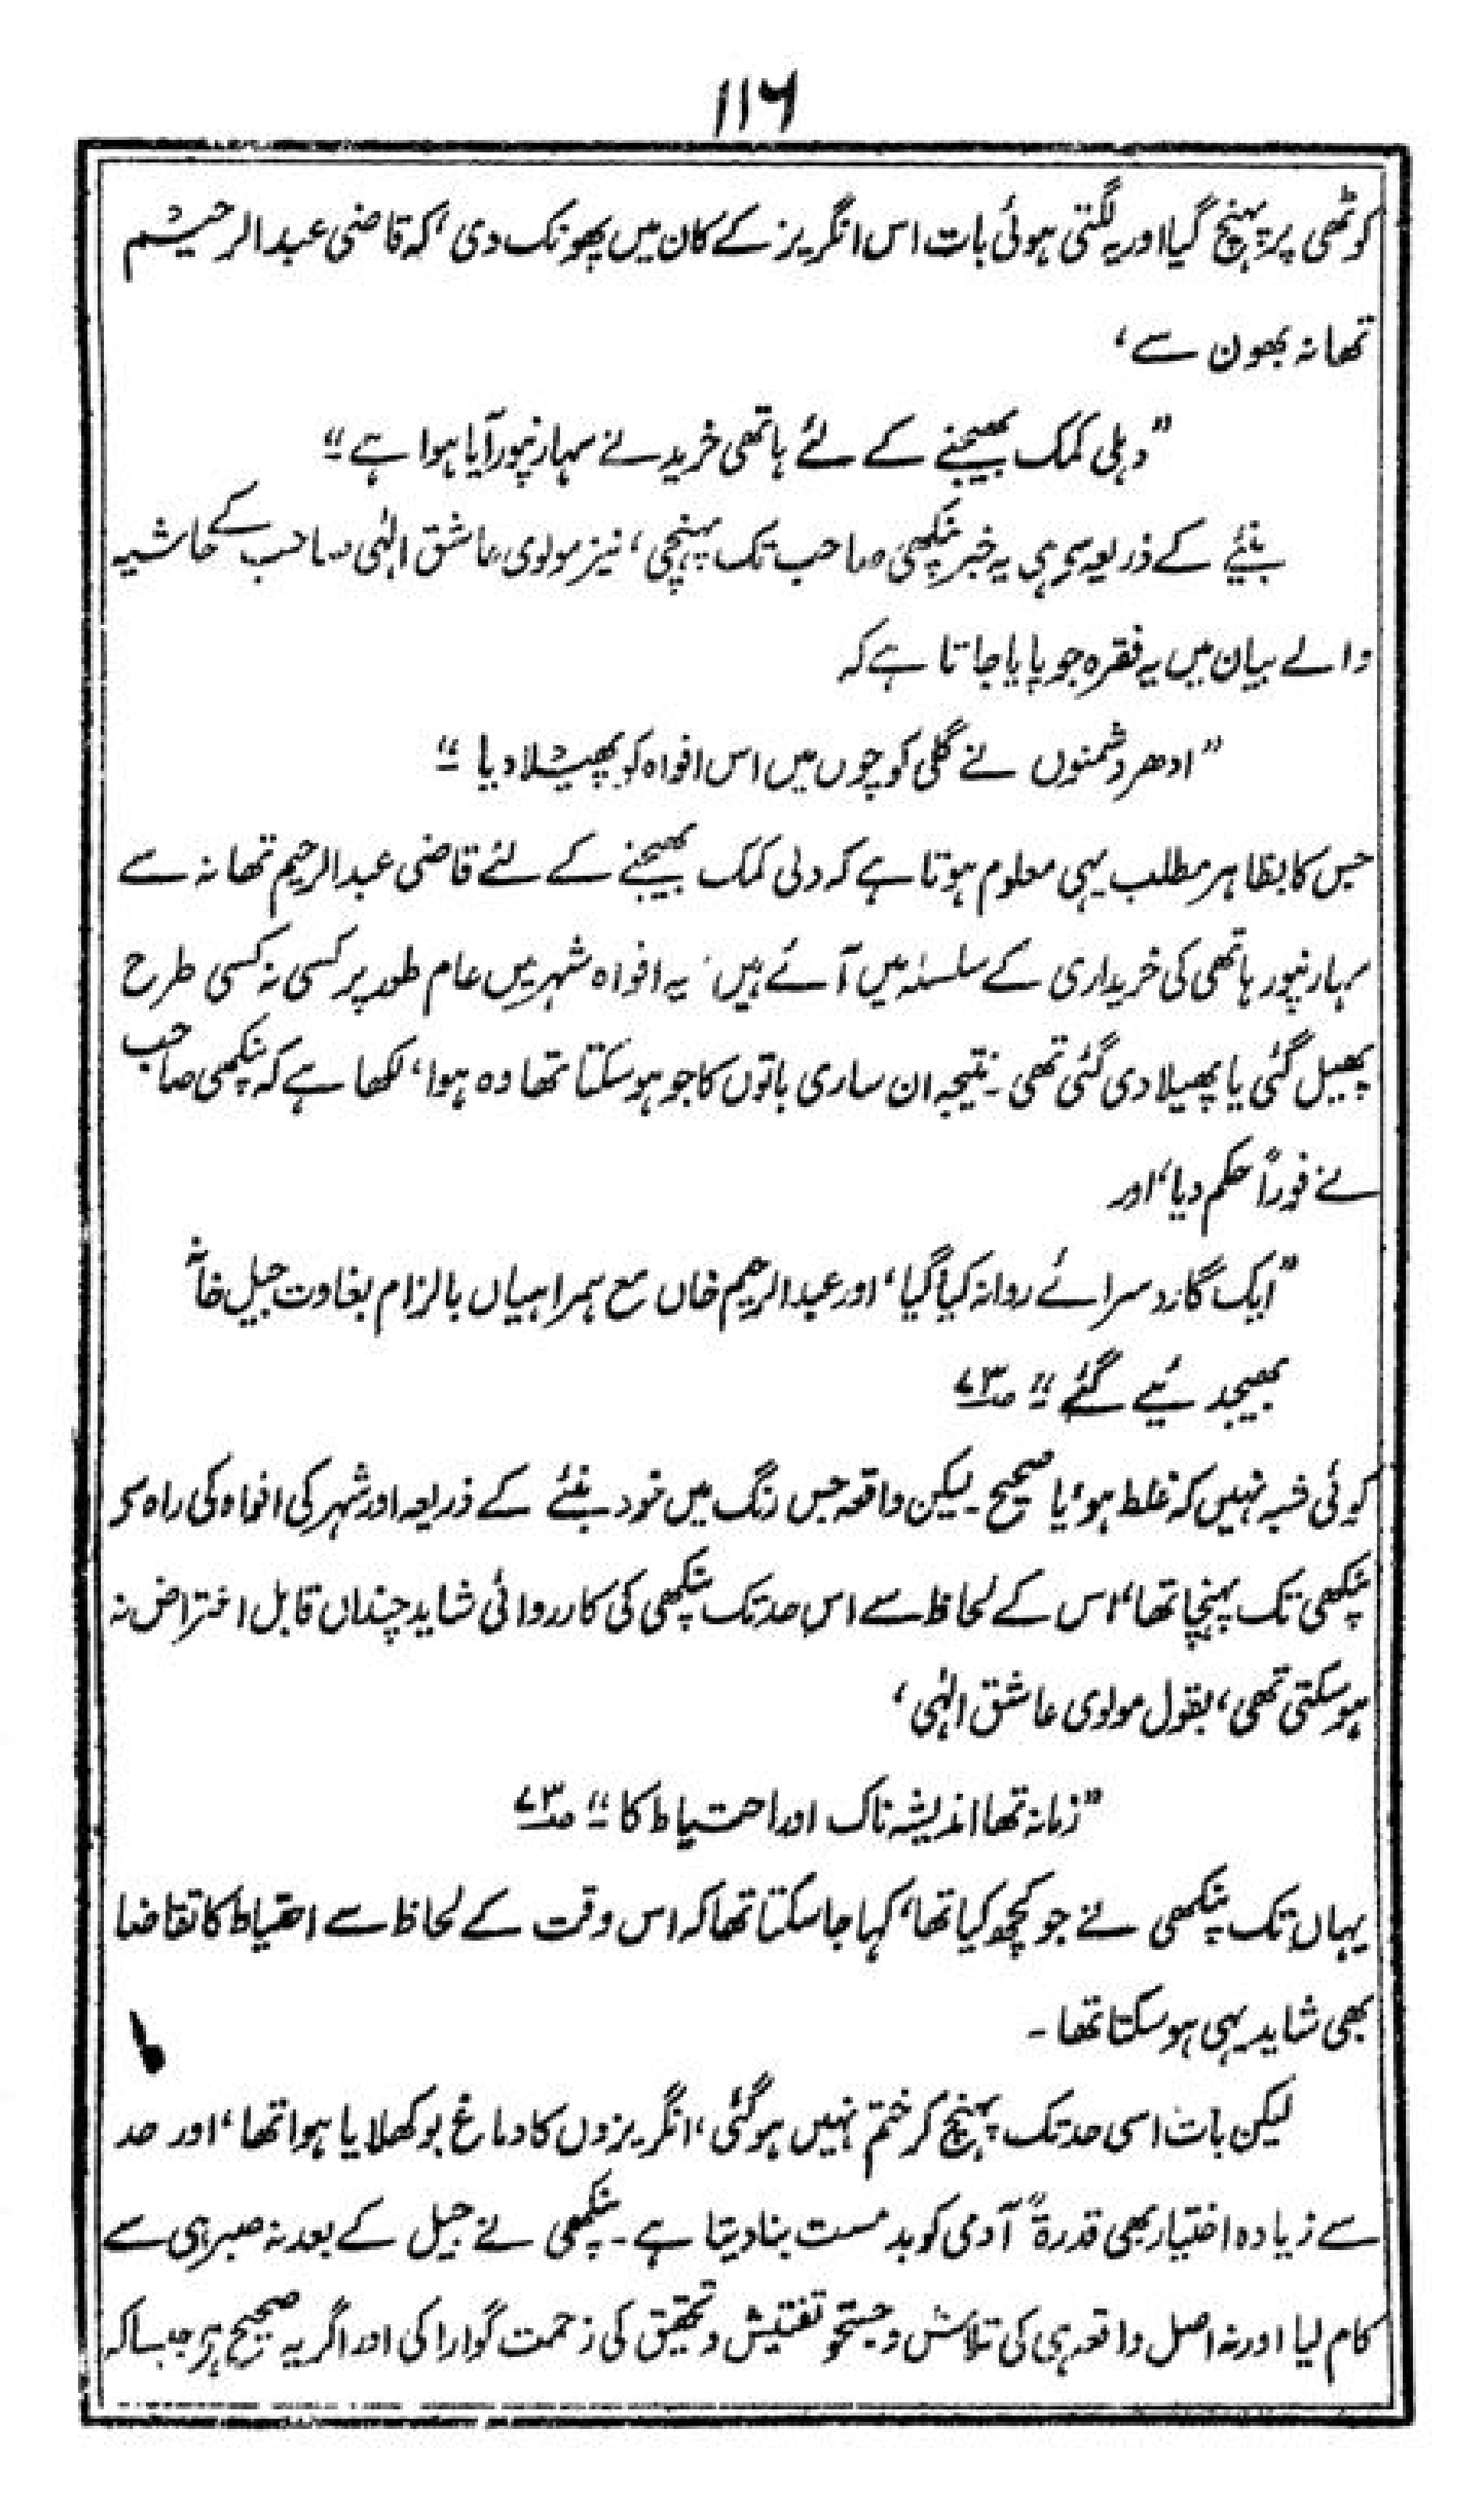 ۱۱۶
کوٹھی پر پہنچ گیا اور یہ لگتی ہوئی بات اس انگریز کے کان میں پھونک دی، کہ قاضی عبدالرحیم
تھانہ بھون سے،
”دہلی کمک بھیجنے کے لئے ہاتھی خریدنے سہارنپور آیا ہوا ہے“
بنئے کے ذریعہ جو ہی یہ خبر پنکھی صاحب تک پہنچی، نیز مولوی عاشق الٰہی صاحب کے حاشیہ
والے بیان میں یہ فقرہ جو پایا جاتا ہے کہ
”ادھر دشمنوں نے گلی کوچوں میں اس افواہ کو پھیلا دیا“
جس کا بظاہر مطلب یہی معلوم ہوتا ہے کہ دلی کمک بھیجنے کے لئے قاضی عبدالرحیم تھانہ سے
سہارنپور ہاتھی کی خریداری کے سلسلہ میں آئے ہیں، یہ افواہ شہر میں عام طور پر کسی نہ کسی طرح
پھیل گئی یا پھیلا دی گئی تھی۔ نتیجہ ان ساری باتوں کا جو ہو سکتا تھا وہ ہوا، لکھا ہے کہ پنکھی صاحب
نے فوراً حکم دیا، اور
”ایک گارد سرائے روانہ کیا گیا، اور عبدالرحیم خاں مع ہمراہیاں بالزام بغاوت جیل خانہ
بھیجدئیے گئے“ ص۷۳
کوئی شبہ نہیں کہ غلط ہو، یا صحیح۔ لیکن واقعہ جس رنگ میں خود بنئے کے ذریعہ اور شہر کی افواہ کی راہ سے
پنکھی تک پہنچا تھا، اس کے لحاظ سے اس حد تک پنکھی کی کارروائی شاید چنداں قابل اعتراض نہ
ہو سکتی تھی، بقول مولوی عاشق الٰہی،
”زمانہ تھا اندیشہ ناک اور احتیاط کا“ ص۷۳
یہاں تک پنکھی نے جو کچھ کیا تھا، کہا جا سکتا تھا کہ اس وقت کے لحاظ سے احتیاط کا تقاضا
بھی شاید یہی ہو سکتا تھا۔
لیکن بات اسی حد تک پہنچ کر ختم نہیں ہو گئی، انگریزوں کا دماغ بوکھلایا ہوا تھا، اور حد
سے زیادہ اختیار بھی قدرۃً آدمی کو بدمست بنا دیتا ہے۔ پنکھی نے جیل کے بعد نہ صبر ہی سے
کام لیا اور نہ اصل واقعہ ہی کی تلاش و جستجو تفتیش و تحقیق کی زحمت گوارا کی اور اگر یہ صحیح ہے جیسا کہ